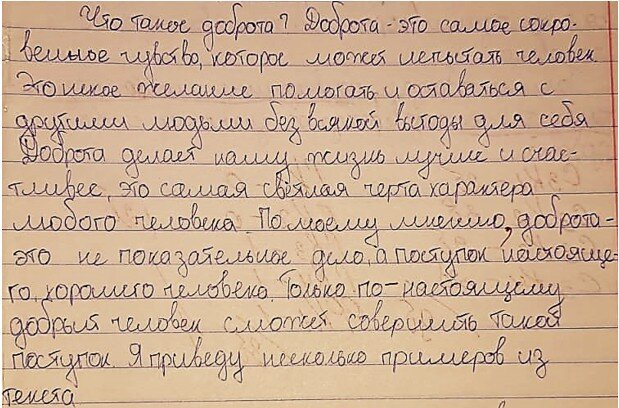 Что такое доброта? Доброта - это самое сокро-
венное чувство, которое может испытать человек.
Это некое желание помогать и оставаться с
другими людьми без всякой выгоды для себя
Доброта делает нашу жизнь лучше и счас-
тливее, это самая светлая черта характера
любого человека. По моему мнению, доброта-
это не показательное дело, а поступок настояще-
го, хорошего человека. Только по-настоящему
добрый человек сможет совершить такой
поступок. Я приведу несколько примеров из
текста